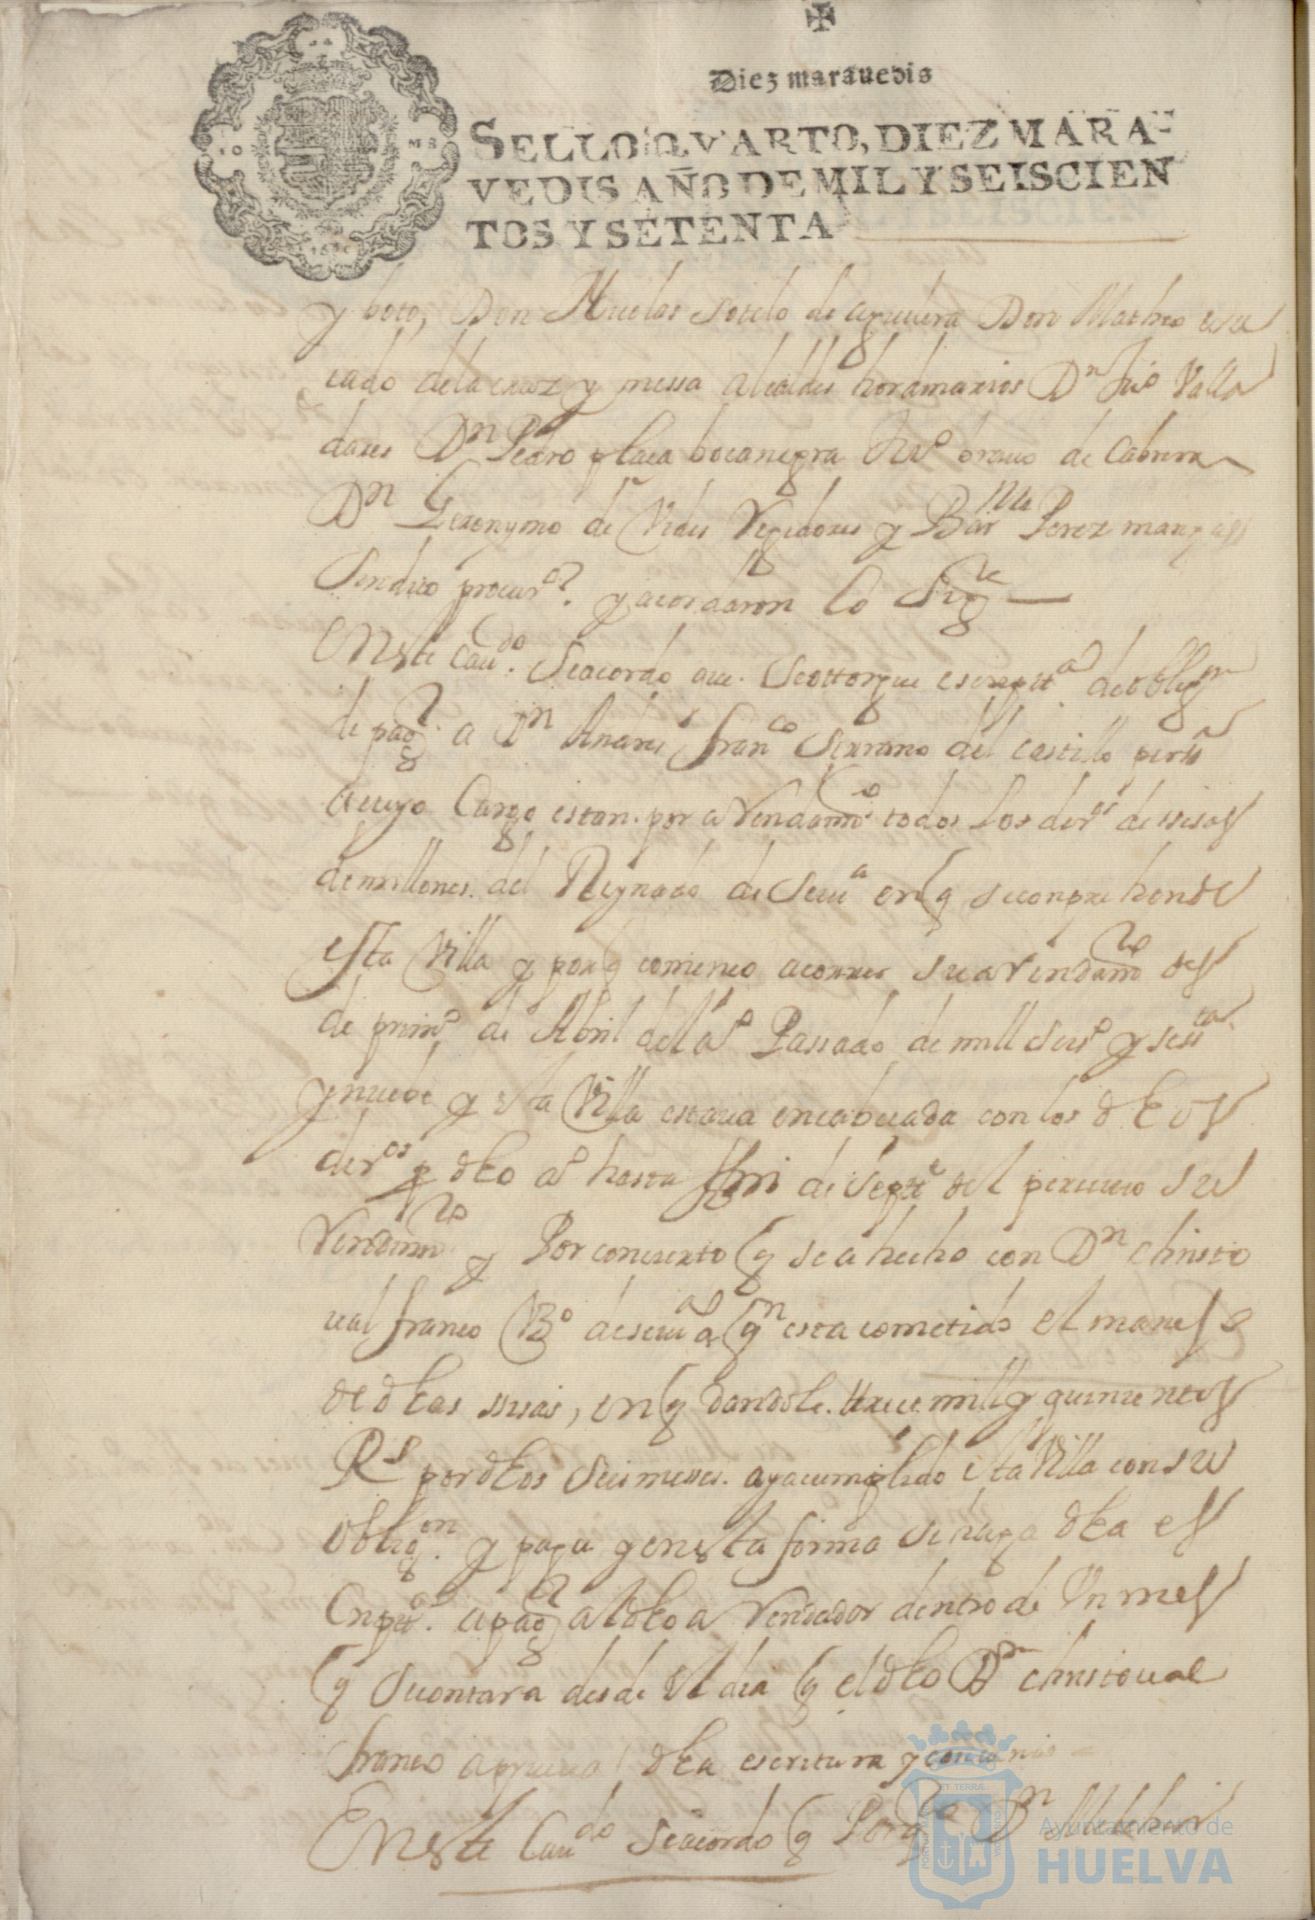 ✠
Diez marauedis
SELLO QVARTO, DIEZ MARA-
VEDIS AÑO DE MIL Y SEISCIEN
TOS Y SETENTA
y boto, Don Nicolas sotelo de aguilera Don Matheo
cado dela cruz y messa alcaldes hordinarios Dn Juo Valla
dares Dn Pedro plaça bocanegra bravo de Cabrera
Dn Geronymo de Vides Regidores y Barme Perez
Sendico procuror. y acordaron lo sigte
En este Cauo. se acordo que. se ottorgue escriptta de obligon
de pago. a Dn Andres franco serrano del castillo
a cuyo Cargo estan. por arrendamto todos los deros de sisas
de millones. del Reynado de Seua en q se conprehende
esta Villa y por q començo a correr su arrendamto des
de primo de Abril del ao Passado de mill seiso y sesta
y nuebe y esta Villa estaua encabeçada con los dhos
deros dho ao hasta fin de septte del
y Por concierto q se a hecho con Dn christo
ual franco Vo de seua a qn esta cometido el manejo
de dhas sisas, en q dandole. trece mill y quinientos
Rs por dhos seis messes. aya cumplido esta Villa con su
obligon. y paga y en esta forma se haga dha es
cripta. a pagar al dho arrendador dentro de Un mes
q se contara desde el dia q el dho Dn christoual
franco aprueua dha escritura y
En este Caudo se acordo q Por qto Dn Melchor
Ayuntamiento de
HUELVA